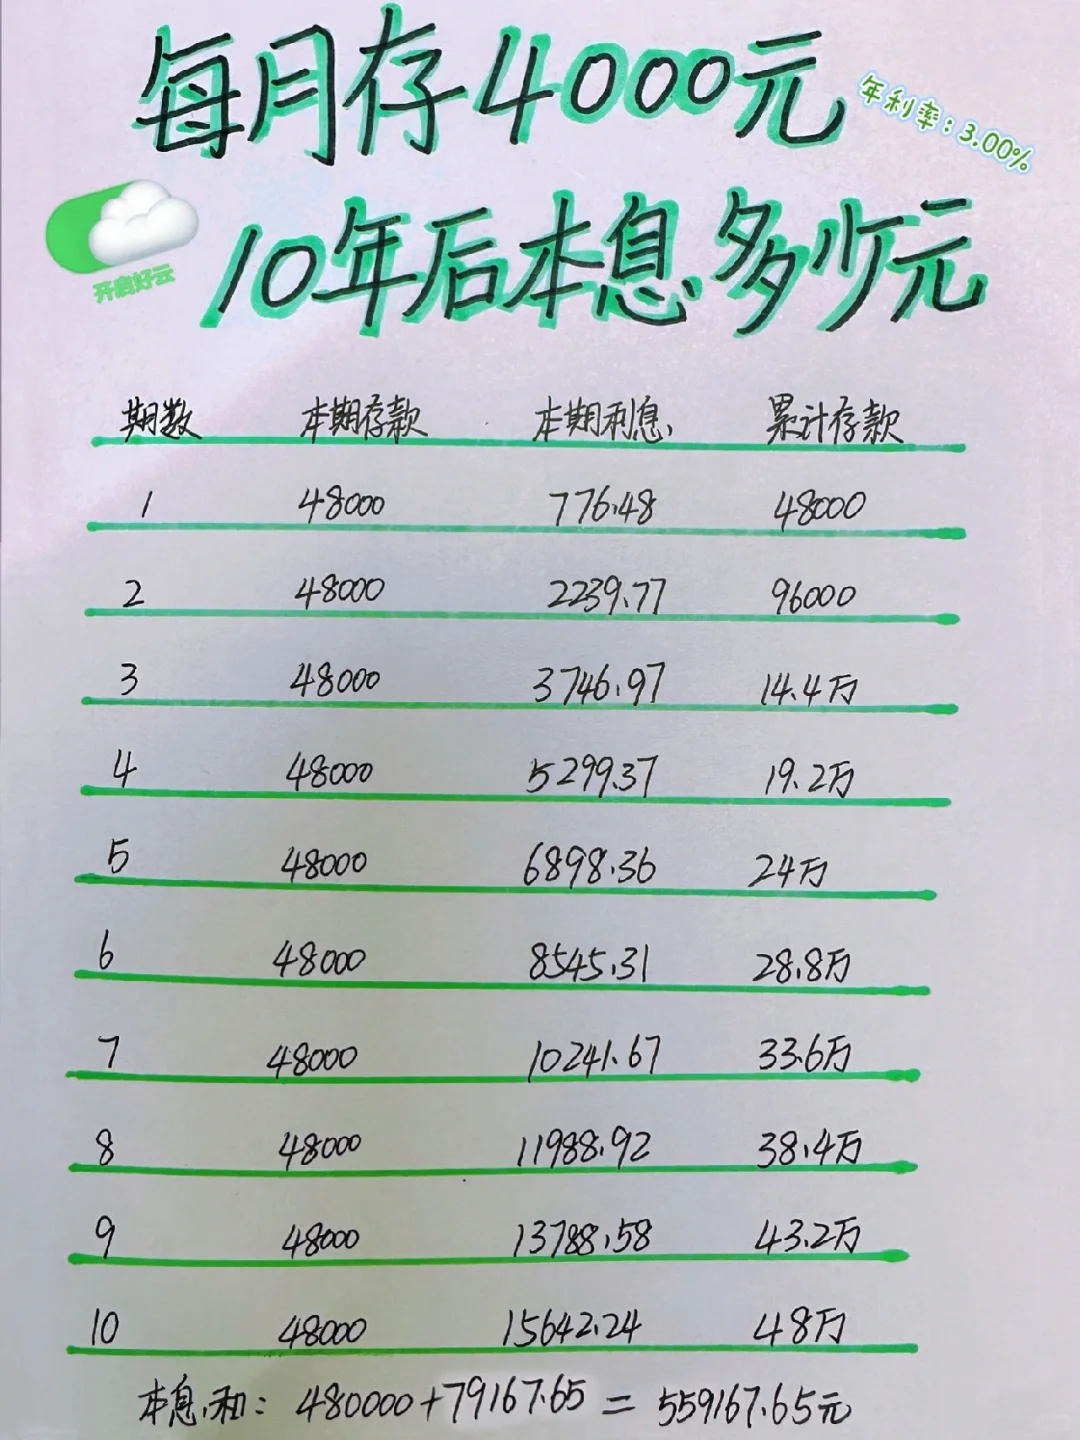 每月存4000元
年利率:3.00%
开启好云
10年后本息多少元
期数 本期存款 本期利息 累计存款
1 48000 776.48 48000
2 48000 2239.77 96000
3 48000 3746.97 14.4万
4 48000 5299.37 19.2万
5 48000 6898.36 24万
6 48000 8545.31 28.8万
7 48000 10241.67 33.6万
8 48000 11988.92 38.4万
9 48000 13788.58 43.2万
10 48000 15642.24 48万
本息和: 480000+79167.65 = 559167.65元